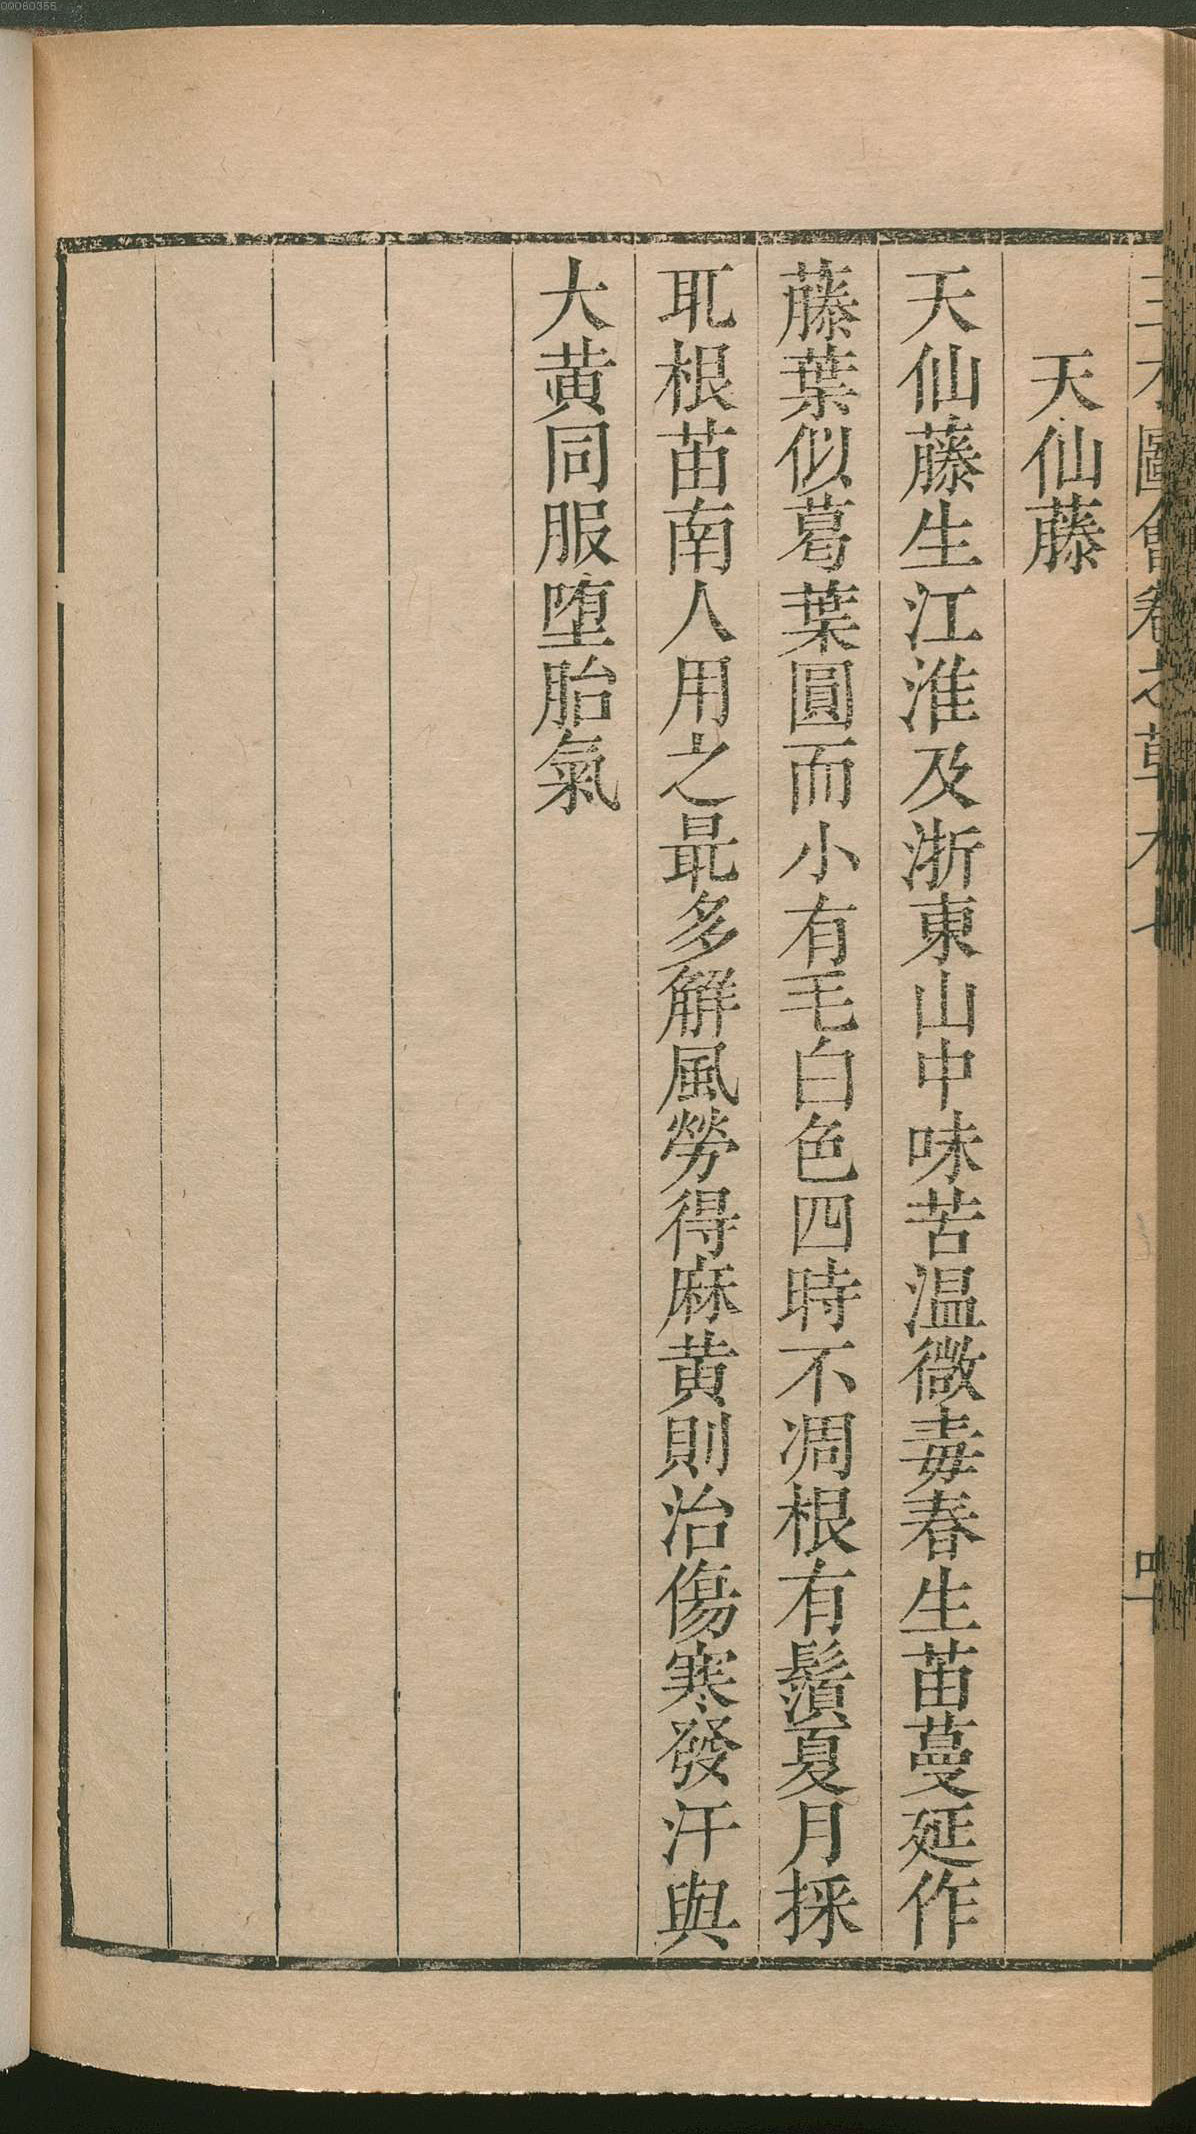 天仙藤
天仙藤生江淮及浙東山中味苦温微毒春生苗蔓延作
藤葉似葛葉圓而小有毛白色四時不凋根有鬚夏月採
耴根苗南人用之最多解風勞得麻黄則治傷寒發汗與
大黄同服堕胎氣
00060355